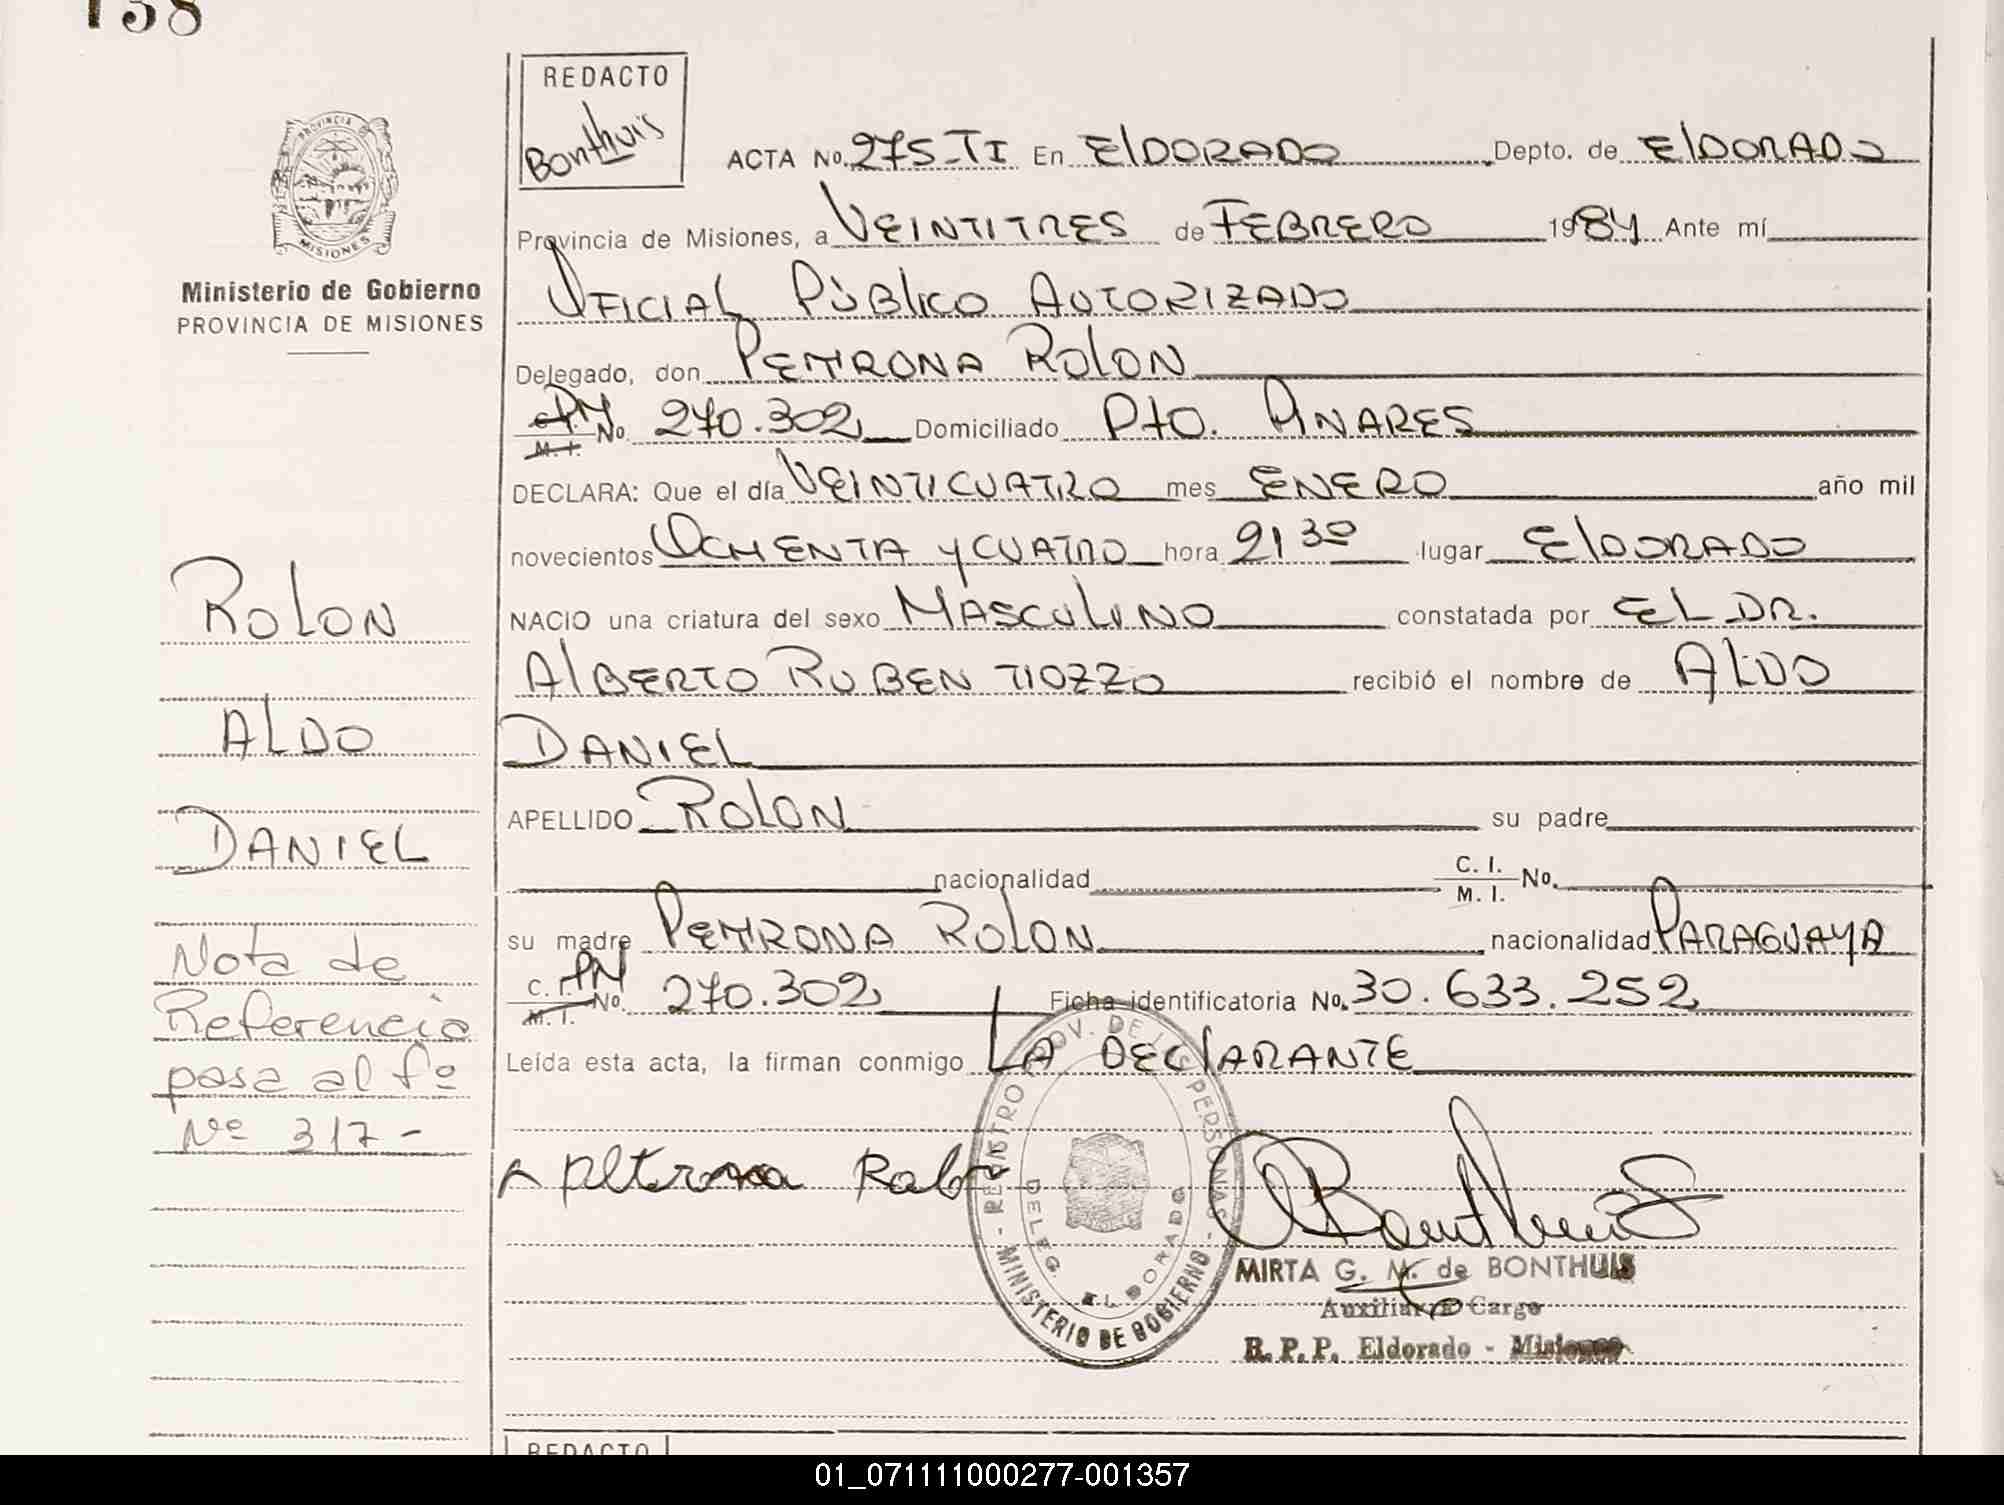 138
REDACTO
Bonthuis
PROVINCIA
MISIONES
Ministerio de Gobierno
PROVINCIA DE MISIONES
ACTA No. 275-TI En ElDORADO Depto. de ElDORADO
Provincia de Misiones, a VEINTITRES de FEBRERO 1984 Ante mí
OFICIAL PÚBlICO AUTORIZADO
Delegado, don PETRONA ROLON
PN No. 270.302 Domiciliado Pto. PINARES
M. I.
DECLARA: Que el día VEINTICUATRO mes ENERO año mil
novecientos OCHENTA y CUATRO hora 21 30 lugar ElDORADO
NACIO una criatura del sexo MASCULINO constatada por EL DR.
AlBERTO RUBEN TIOZZO recibió el nombre de ALDO
DANIEL
APELLIDO ROLON su padre
nacionalidad C. I. No.
M. I.
su madre PETRONA ROLON nacionalidad PARAGUAYA
C. I. PN No. 270.302 Ficha identificatoria No. 30.633.252
M. I.
Leída esta acta, la firman conmigo LA DEClARANTE
ROLON
ALDO
DANIEL
Nota de
Referencia
pasa al fº
Nº 317-
Petrona Rolon
Bonthuis
REGISTRO PROV. DE LAS PERSONAS
DELEG. ELDORADO
- MINISTERIO DE GOBIERNO -
MIRTA G. M. de BONTHUIS
Auxiliar a Cargo
R. P. P. Eldorado - Misiones
REDACTO
01_071111000277-001357